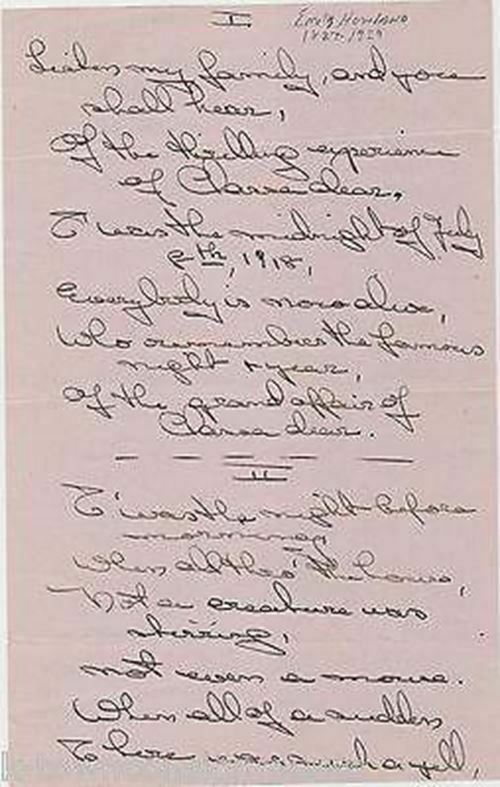 I
Emily Howland
1827-1929
Listen my family, and you
shall hear,
Of the thrilling experience
of Clarra dear,
T'was the midnight of July
8th, 1918,
Everybody is now alive,
Who remembers the famous
night & year,
Of the grand affair of
Clarra dear.
II
T'was the night before
morning
When all thro' the house,
Not a creature was
stirring,
not even a mouse.
When all of a sudden
There was such a yell,